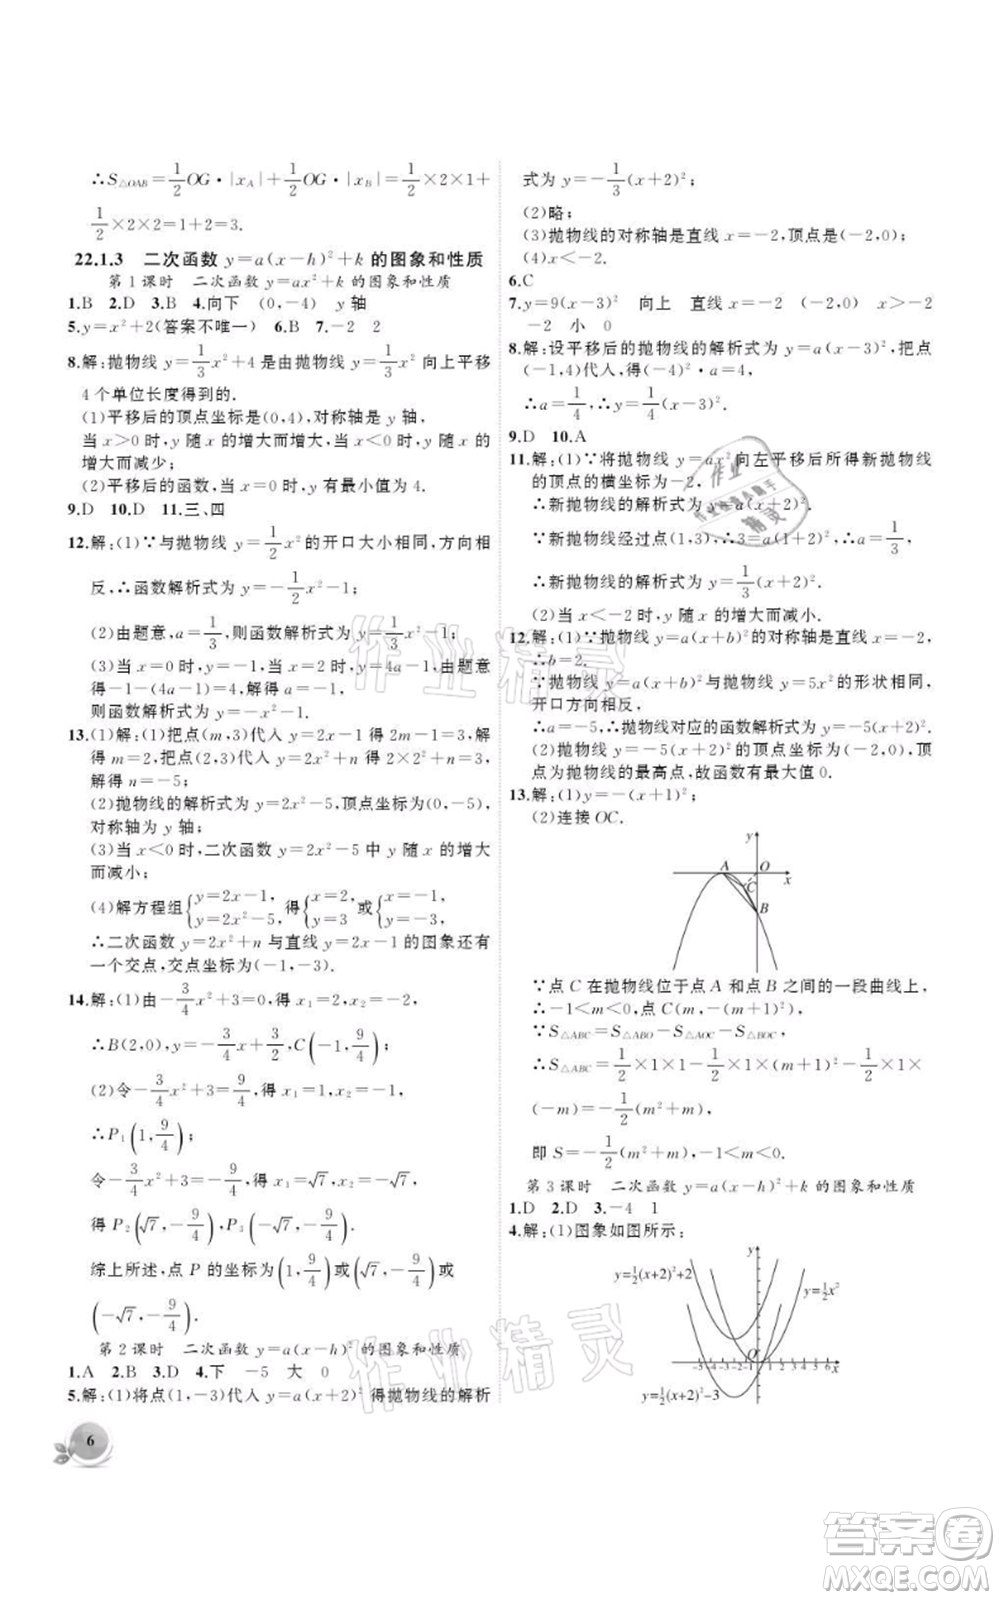 ∴S△OAB=1/2 OG·|x_A|+1/2 OG·|x_B|=1/2×2×1+
1/2×2×2=1+2=3.
22.1.3 二次函数 y=a(x-h)²+k 的图象和性质
第1课时 二次函数 y=ax²+k 的图象和性质
1.B 2.D 3.B 4.向下 (0,-4) y 轴
5.y=x²+2(答案不唯一) 6.B 7.-2 2
8.解:抛物线 y=1/3x²+4 是由抛物线 y=1/3x² 向上平移
4 个单位长度得到的.
(1)平移后的顶点坐标是(0,4),对称轴是 y 轴,
当 x>0 时,y 随 x 的增大而增大,当 x<0 时,y 随 x 的
增大而减少;
(2)平移后的函数,当 x=0 时,y 有最小值,最小值为 4.
9.D 10.D 11.三、四
12.解:(1)∵与抛物线 y=1/2x² 的开口大小相同,方向相
反,∴函数解析式为 y=-1/2x²-1;
(2)由题意,a=1/3,则函数解析式为 y=1/3x²-1;
(3)当 x=0 时,y=-1,当 x=2 时,y=4a-1,由题意
得-1-(4a-1)=4,解得 a=-1.
则函数解析式为 y=-x²-1.
13.(1)解:(1)把点(m,3)代入 y=2x-1 得 2m-1=3,解
得 m=2,把点(2,3)代入 y=2x²+n 得 2×2²+n=3,
解得 n=-5;
(2)抛物线的解析式为 y=2x²-5,顶点坐标为(0,-5),
对称轴为 y 轴;
(3)当 x<0 时,二次函数 y=2x²-5 中 y 随 x 的增大
而减小;
(4)解方程组{y=2x-1,y=2x²-5,得{x=2,y=3或{x=-1,y=-3,
∴二次函数 y=2x²+n 与直线 y=2x-1 的图象还有
一个交点,交点坐标为(-1,-3).
14.解:(1)由-3/4x²+3=0,得 x=2 或 x=-2,
∴B(2,0),y=-3/4x+3/2,C(-1,9/4);
(2)令-3/4x²+3=9/4,得 x₁=1,x₂=-1,
∴P₁(1,9/4);
令-3/4x²+3=-9/4,得 x₁=√7,x₂=-√7,
得 P₂(√7,-9/4),P₃(-√7,-9/4).
综上所述,点 P 的坐标为(1,9/4)或(√7,-9/4)或
(-√7,-9/4).
第2课时 二次函数 y=a(x-h)² 的图象和性质
1.A 2.B 3.D 4.下 -5 大 0
5.解:(1)将点(1,-3)代入 y=a(x+2)² 得抛物线的解析
6
式为 y=-1/3(x+2)²;
(2)略;
(3)抛物线的对称轴是直线 x=-2,顶点是(-2,0);
(4)x<-2.
6.C
7.y=9(x-3)² 向上 直线 x=-2 (-2,0) x>-2
-2 小 0
8.解:设平移后的抛物线的解析式为 y=a(x-3)²,把点
(-1,4)代入,得(-4)²·a=4,
∴a=1/4,∴y=1/4(x-3)².
9.D 10.A
11.解:(1)∵将抛物线 y=ax² 向左平移后所得新抛物线
的顶点的横坐标为-2,
∴新抛物线的解析式为 y=a(x+2)².
∵新抛物线经过点(1,3),∴3=9a,∴a=1/3,
∴新抛物线的解析式为 y=1/3(x+2)².
(2)当 x<-2 时,y 随 x 的增大而减小.
12.解:(1)∵抛物线 y=a(x+b)² 的对称轴是直线 x=-2,
∴b=2.
∵抛物线 y=a(x+b)² 与抛物线 y=5x² 的形状相同,
开口方向相反,
∴a=-5,∴抛物线对应的函数解析式为 y=-5(x+2)².
(2)抛物线 y=-5(x+2)² 的顶点坐标为(-2,0),顶
点为抛物线的最高点,故函数有最大值 0.
13.解:(1)y=-(x+1)²;
(2)连接 OC.
y
A
O
x
C
B
∵点 C 在抛物线位于点 A 和点 B 之间的一段曲线上,
∴-1<m<0,点 C(m,-(m+1)²),
∵S△ABC=S△ABO-S△AOC-S△BOC,
∴S△ABC=1/2×1×1-1/2×1×(m+1)²-1/2×1×
(-m)=-1/2(m²+m),
即 S=-1/2(m²+m),-1<m<0.
第3课时 二次函数 y=a(x-h)²+k 的图象和性质
1.D 2.D 3.-4 1
4.解:(1)图象如图所示;
y
y=1/2(x+2)²+2
y=1/2x²
-5-4-3-2-1 O 1 2 3 4 5 6 x
y=1/2(x+2)²-3
作业精灵
作业精灵
作业
精灵
答案卷
MXQE.COM